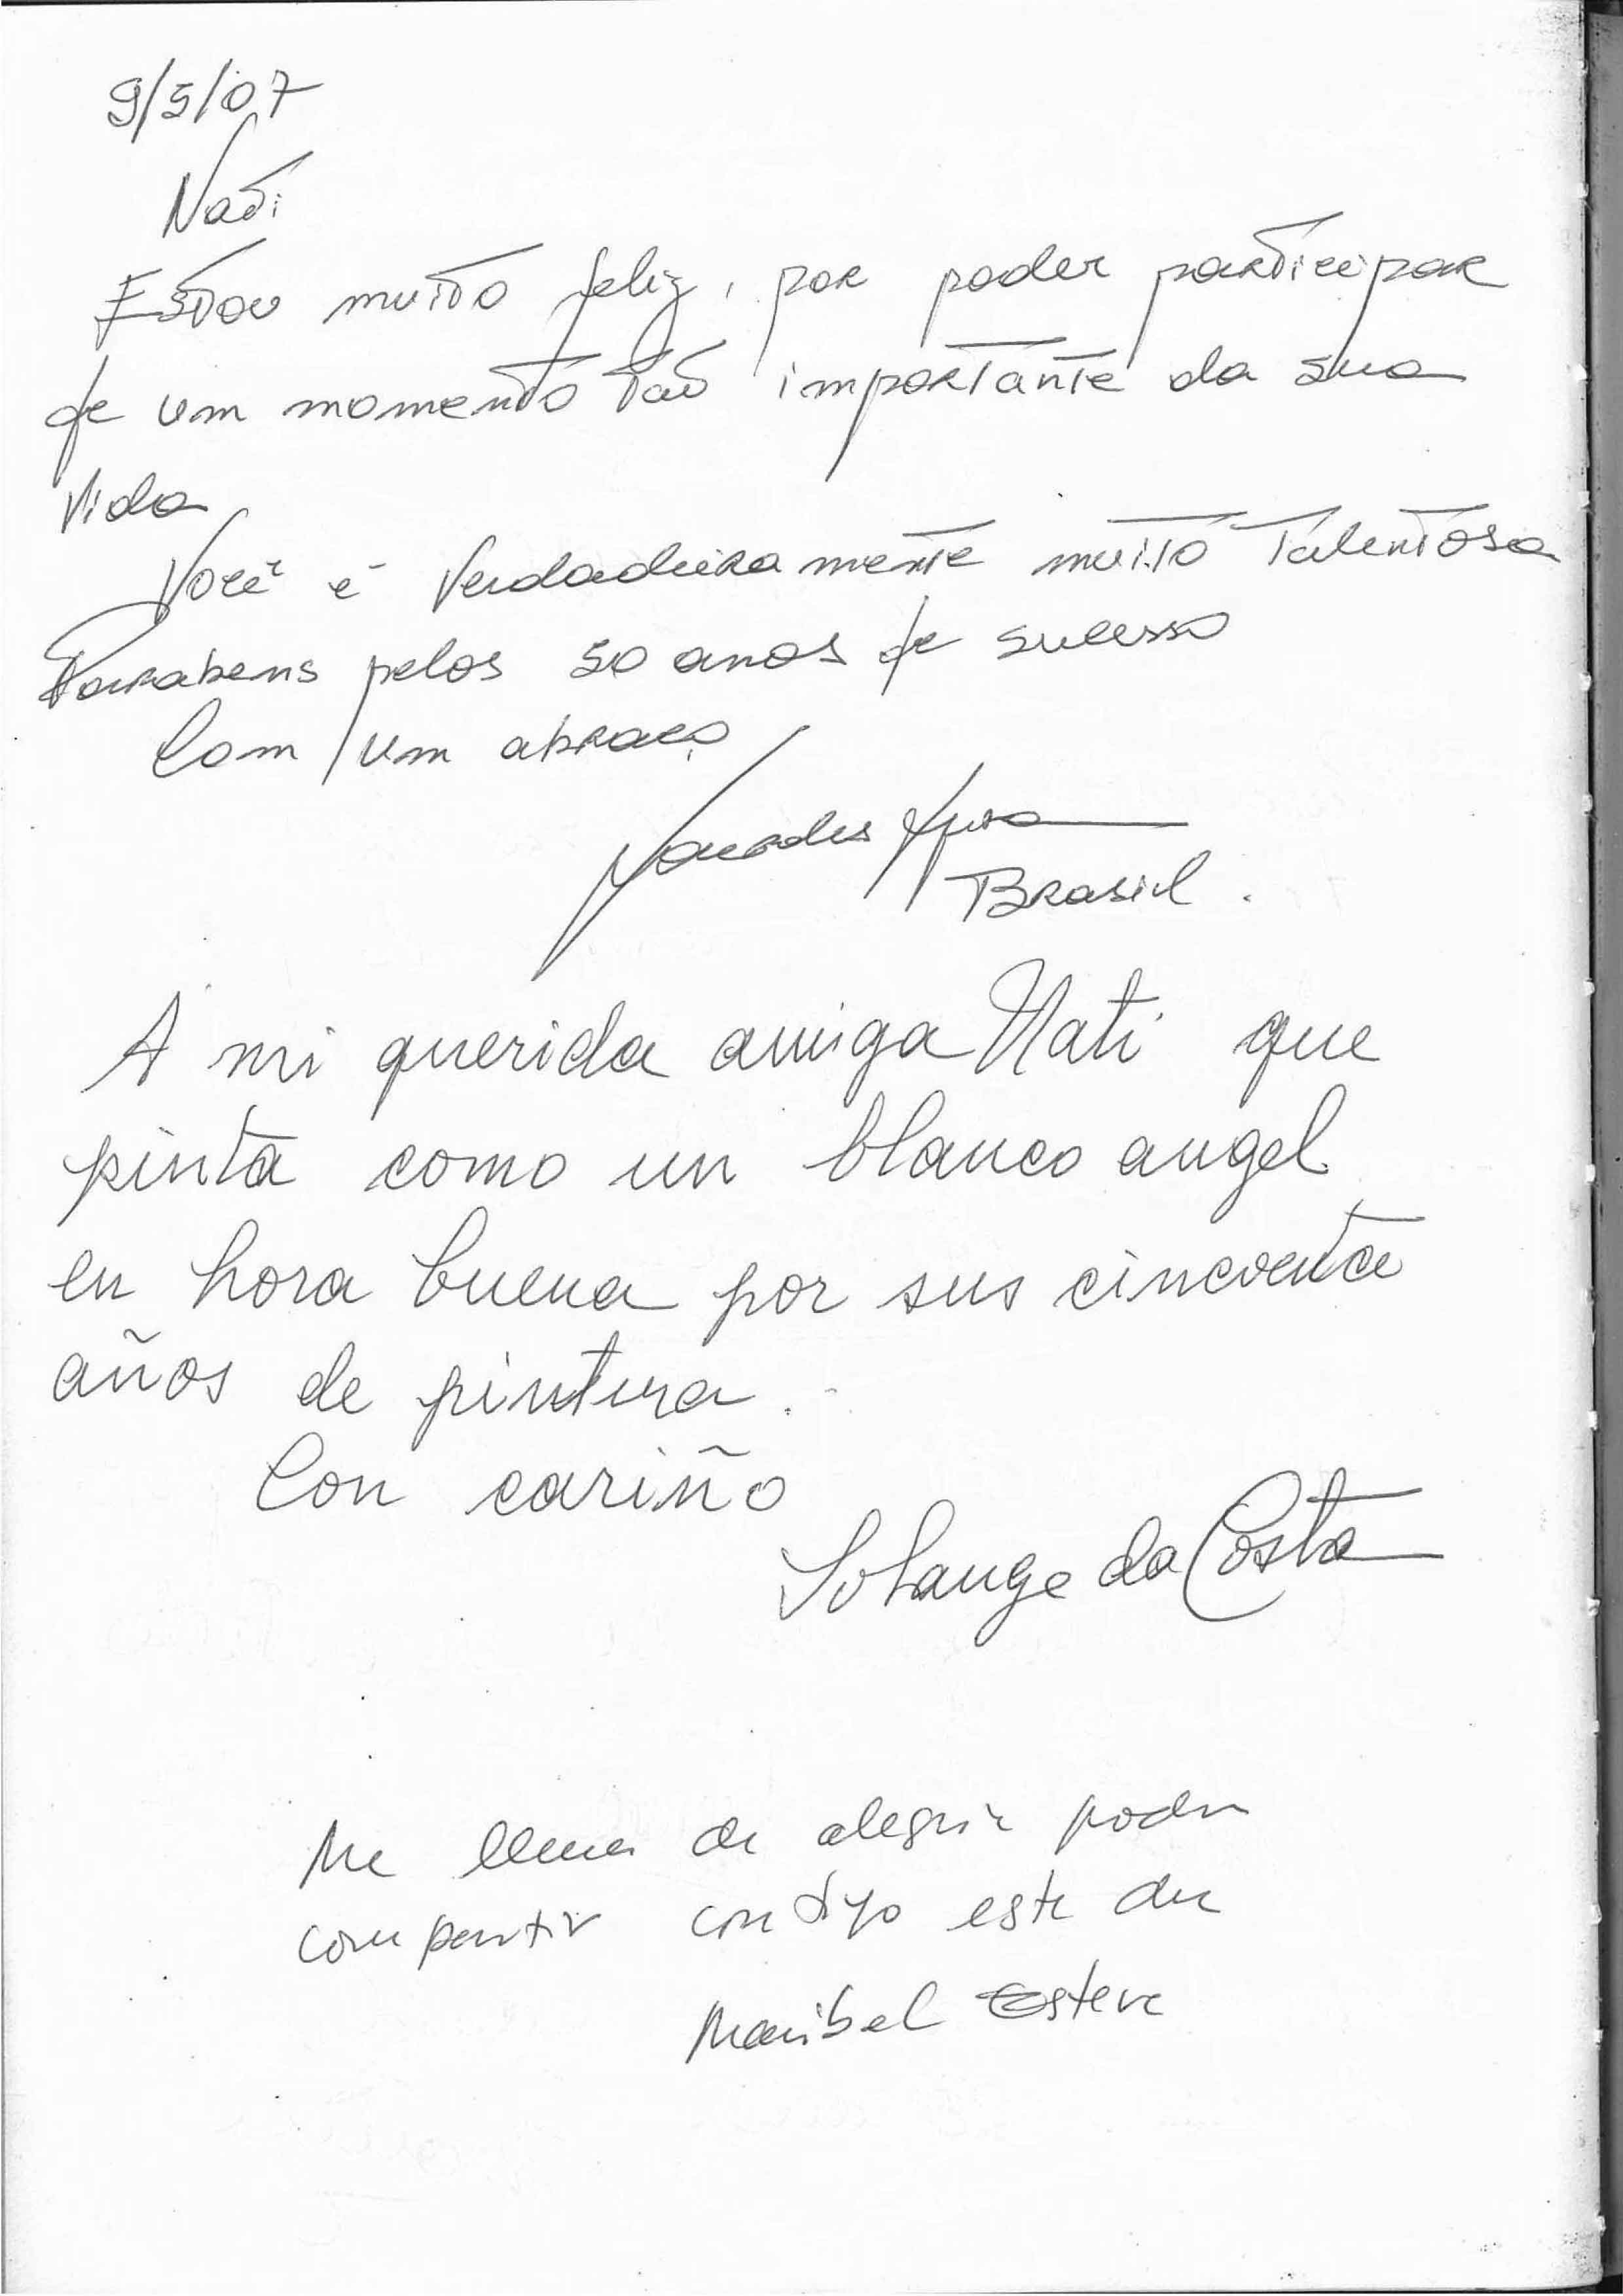 9/5/07
Nati
Estou muito feliz, por poder participar
de um momento tão importante da sua
Vida
Você é Verdadeiramente muito Talentosa
Parabens pelos 50 anos de sucesso
Com um abraço
Lourdes
Brasil.
A mi querida amiga Nati que
pinta como un blanco angel
en hora buena por sus cincuenta
años de pintura.
Con cariño
Solange da Costa
Me llena de alegria poder
compartir contigo este dia
Maribel Esteve